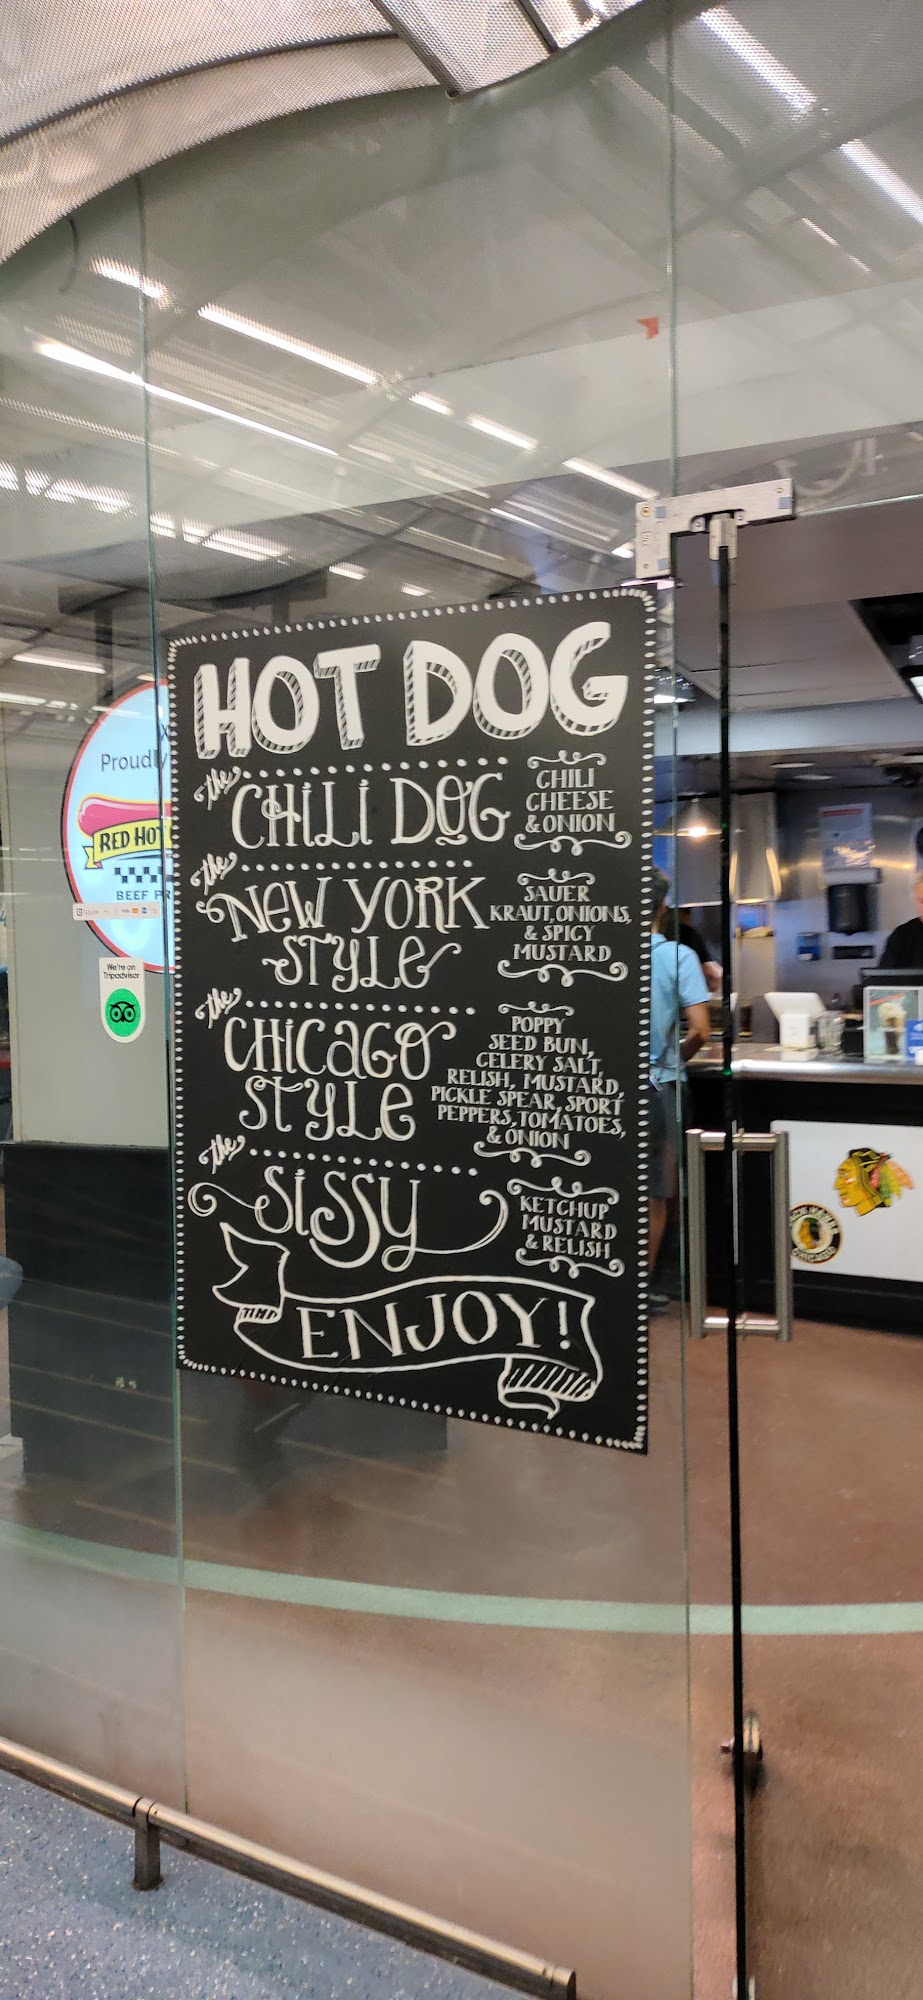 HOT DOG
the
CHiLi DOG
CHILI
CHEESE
& ONION
the
New YORK
STYLe
SAUER
KRAUT, ONIONS,
& SPICY
MUSTARD
the
CHicaGO
STYLe
POPPY
SEED BUN,
CELERY SALT,
RELISH, MUSTARD,
PICKLE SPEAR, SPORT
PEPPERS, TOMATOES,
& ONION
the
SiSSY
KETCHUP
MUSTARD
& RELISH
ENJOY!
Proudly
RED HOT
BEEF
We're on
Tripadvisor